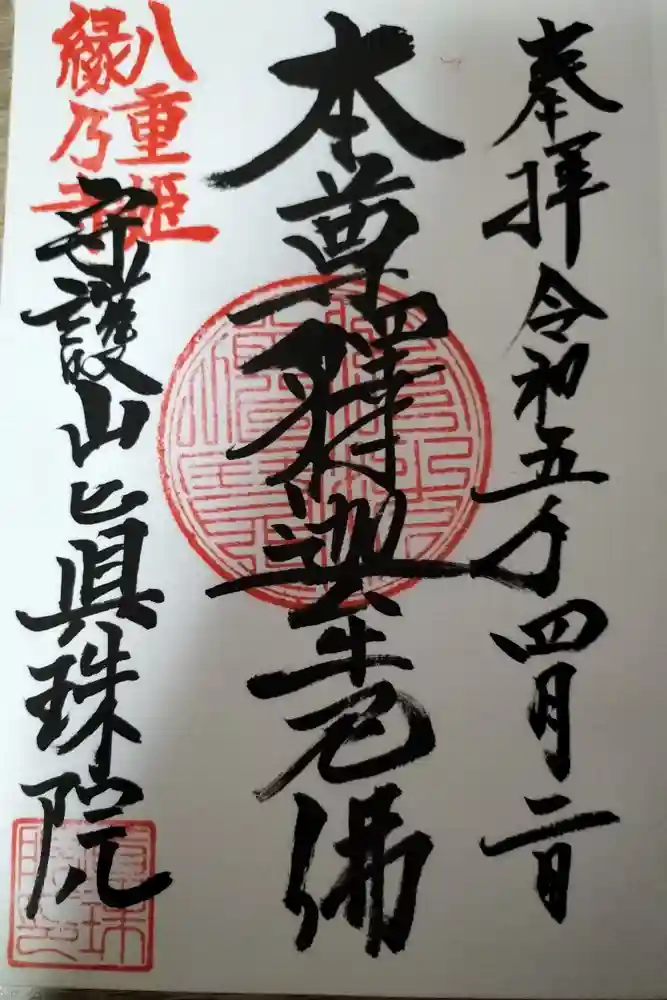 奉拝 令和五年四月二日
本尊釋迦牟尼佛
八重姫
縁乃寺
守護山眞珠院